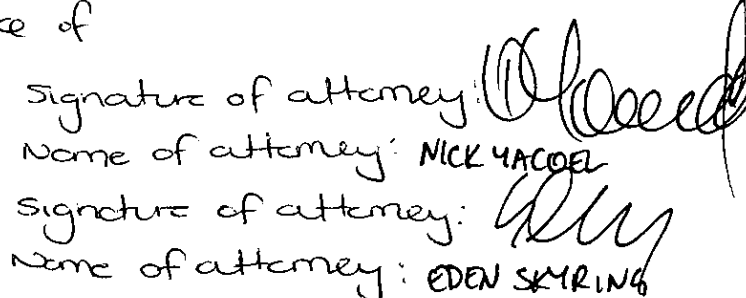 ce of
Signature of attorney:
Name of attorney: NICK YACOEL
Signature of attorney:
Name of attorney: EDEN SKYRING